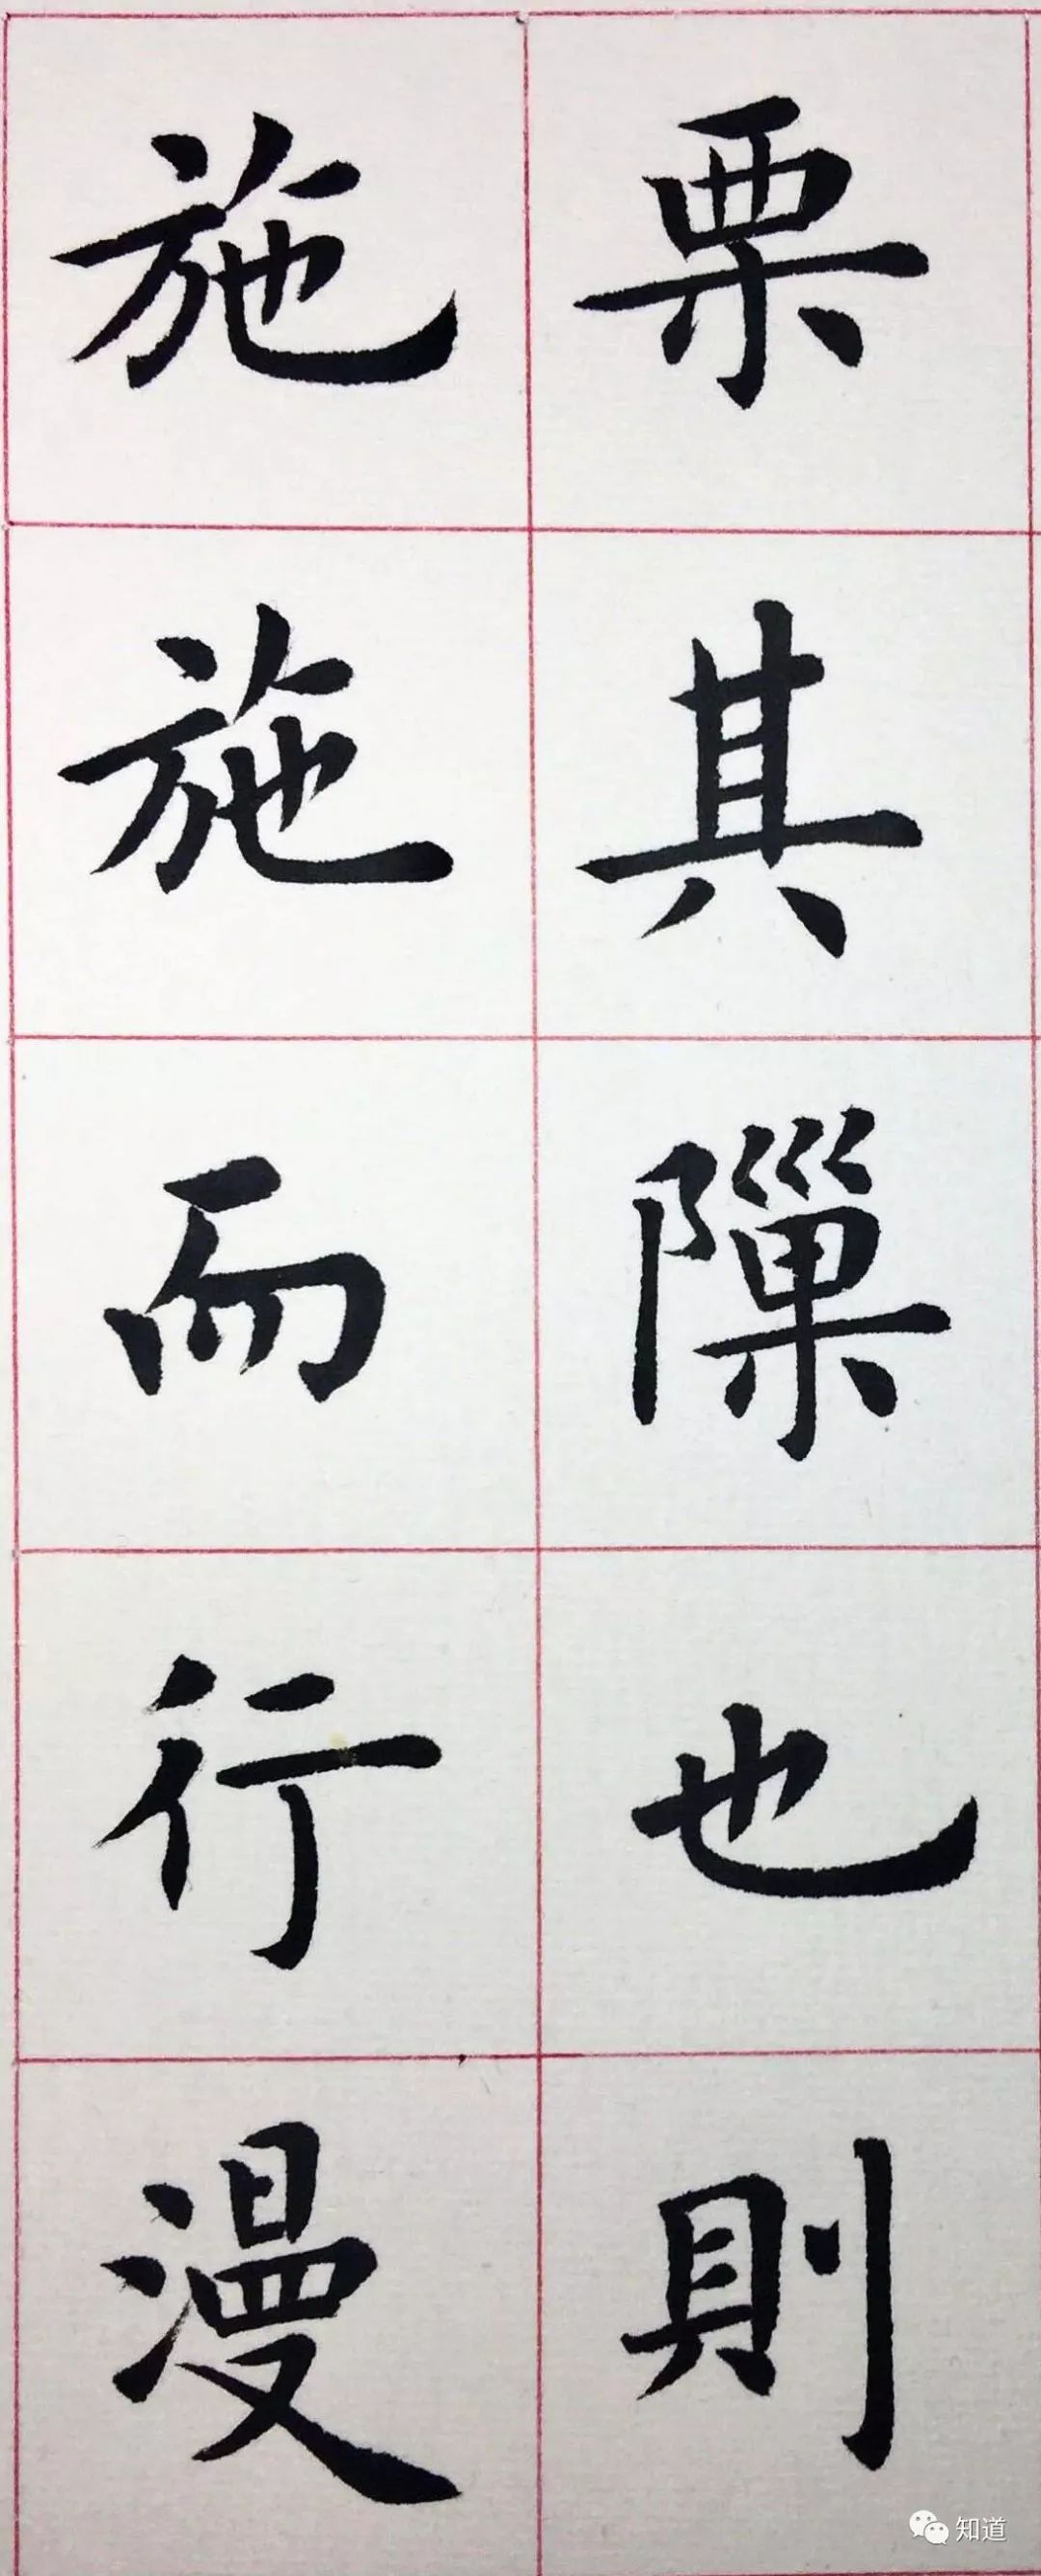 栗其隟也則
施施而行漫
知道